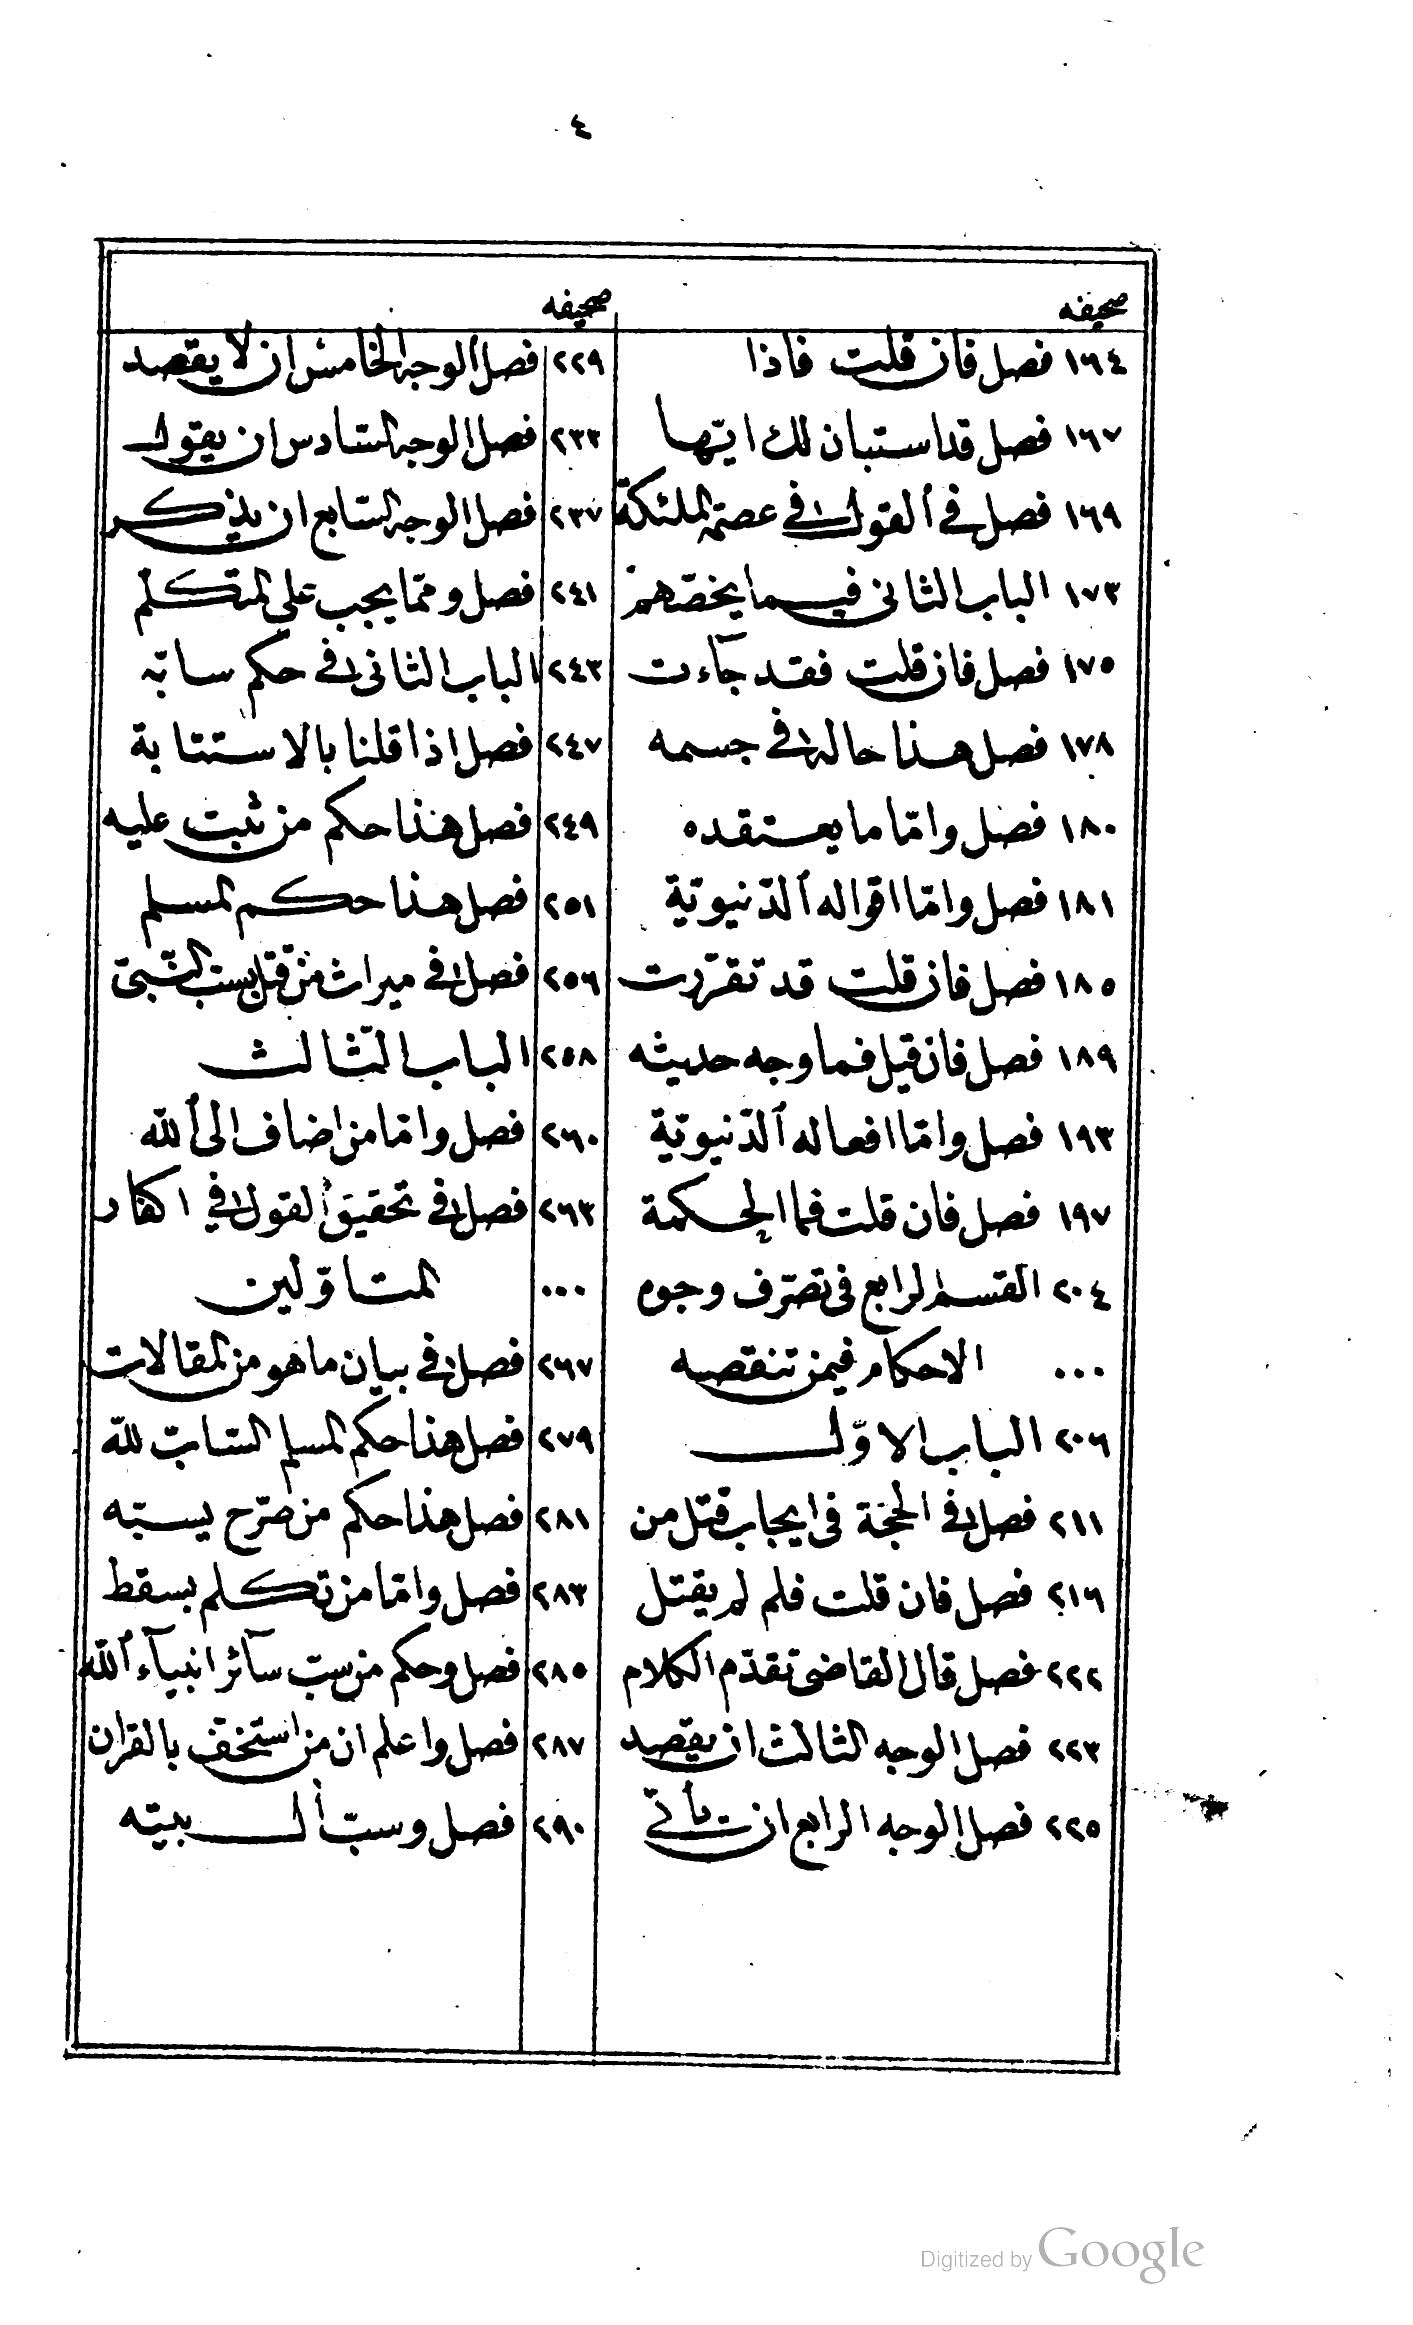 ٤
صحيفه
١٦٤ فصل فان قلت فاذا
١٦٧ فصل قد استبان لك ايّها
١٦٩ فصل في القول في عصمة الملئكة
١٧٣ الباب الثانى فيما يخصّهم
١٧٥ فصل فان قلت فقد جآءت
١٧٨ فصل هذا حاله في جسمه
١٨٠ فصل وامّا ما يعتقده
١٨١ فصل وامّا اقواله الدّنيويّة
١٨٥ فصل فان قلت قد تقرّرت
١٨٩ فصل فان قيل فما وجه حديثه
١٩٣ فصل وامّا افعاله الدّنيويّة
١٩٧ فصل فان قلت فما الحكمة
٢٠٤ القسم الرابع فى تصرّف وجوه
٠٠٠ الاحكام فيمن تنقصه
٢٠٦ الباب الاوّل
٢١١ فصل في الحجّة فى ايجاب قتل من
٢١٦ فصل فان قلت فلم لم يقتل
٢٢٢ فصل قال القاضى تقدّم الكلام
٢٢٣ فصل الوجه الثالث ان يقصد
٢٢٥ فصل الوجه الرابع ان يأتى
صحيفه
٢٢٩ فصل الوجه الخامس ان لا يقصد
٢٣٣ فصل الوجه السّادس ان يقول
٢٣٧ فصل الوجه السّابع ان يذكر
٢٤١ فصل وممّا يجب على المتكلّم
٢٤٣ الباب الثانى في حكم سابّه
٢٤٧ فصل اذا قلنا بالاستتابة
٢٤٩ فصل هذا حكم من ثبت عليه
٢٥١ فصل هذا حكم المسلم
٢٥٦ فصل في ميراث من قتل بسبّ النّبىّ
٢٥٨ الباب الثّالث
٢٦٠ فصل وامّا من اضاف الى الله
٢٦٣ فصل في تحقيق القول في اكفار
٠٠٠ المتاوّلين
٢٦٧ فصل في بيان ما هو من المقالات
٢٧٩ فصل هذا حكم المسلم السّابّ لله
٢٨١ فصل هذا حكم من صرّح بسبّه
٢٨٣ فصل وامّا من تكلم بسقط
٢٨٥ فصل وحكم من سبّ سآئر انبيآء الله
٢٨٧ فصل واعلم ان من استخفّ بالقران
٢٩٠ فصل وسبّ ال بيته
Digitized by Google